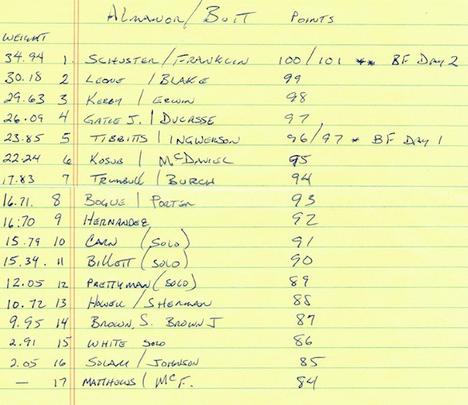 ALMANOR/BUTT POINTS
WEIGHT
34.94 1. SCHUSTER/FRANKLIN 100/101 ** BF DAY 2
30.18 2 LEONE / BLAKE 99
29.63 3 KERBY / ERWIN 98
26.09 4 GATLE J. / DUCASSE 97
23.85 5 TIBBITTS / INGWERSON 96/97 * BF DAY 1
22.24 6 KOSUB / MCDANIEL 95
17.83 7 TRUMBULL / BURCH 94
16.71. 8 BOGUE / PORTER 93
16.70 9 HERNANDEZ 92
15.79 10 CARN (SOLO) 91
15.34. 11 BILLETT (SOLO) 90
12.05 12 PRETTYMAN (SOLO) 89
10.72 13 HOWELL / SHERMAN 88
9.95 14 BROWN, S. BROWN J 87
2.91 15 WHITE SOLO 86
2.05 16 / JOHNSON 85
— 17 MATTHEWS / McF. 84